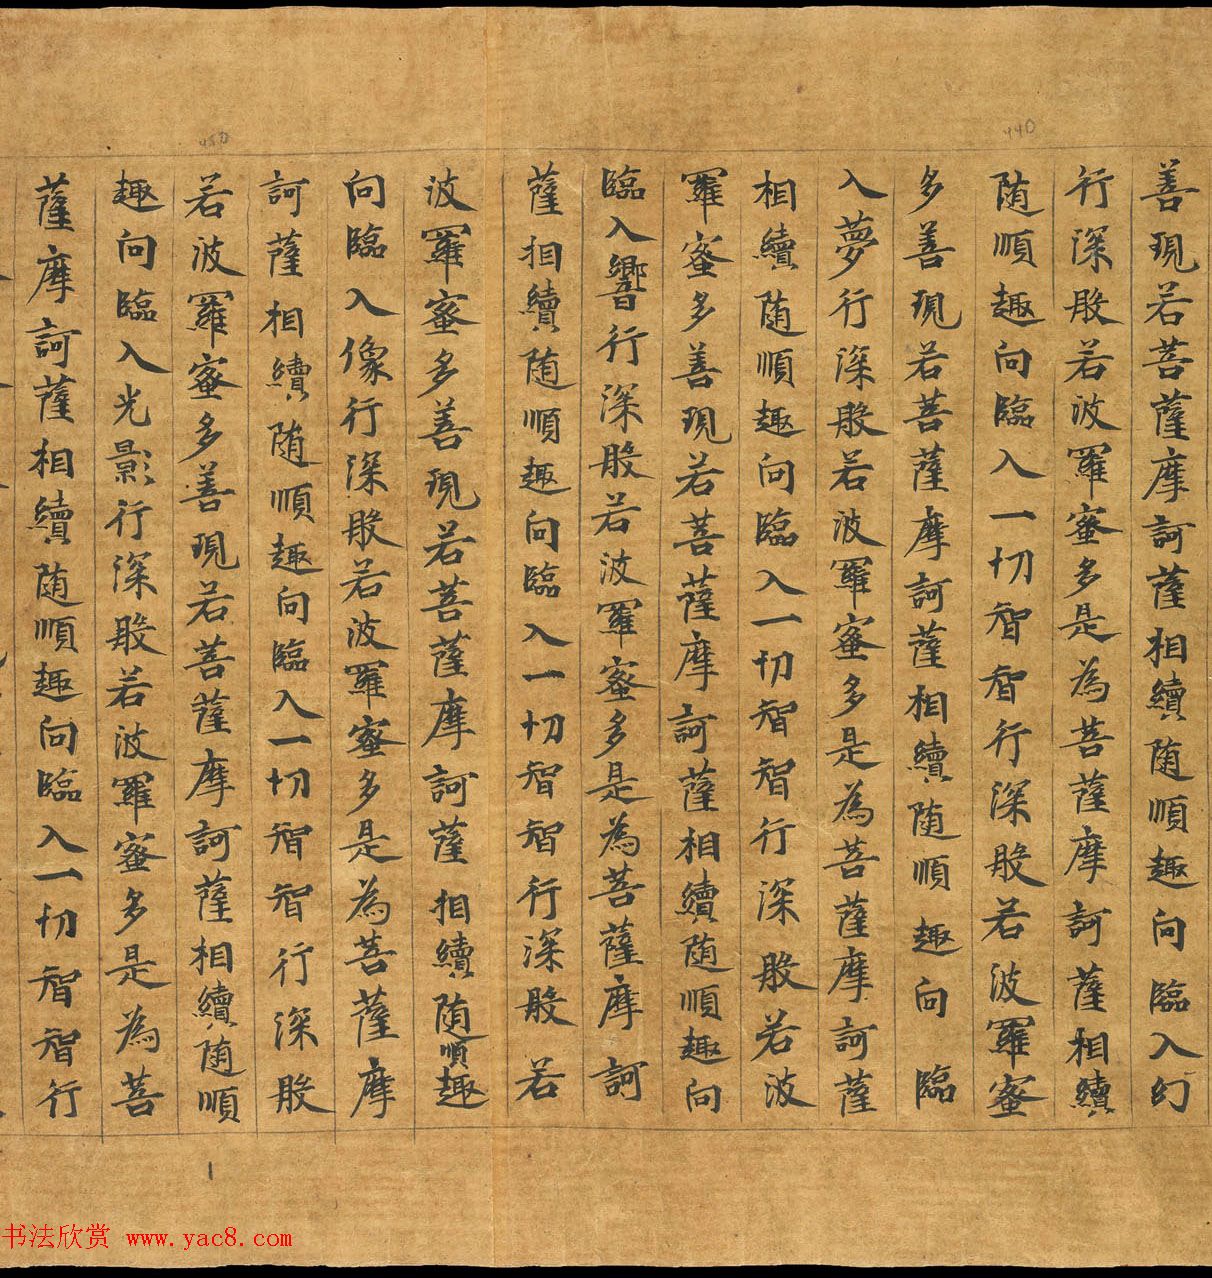 善現若菩薩摩訶薩相續随順趣向臨入幻
行深般若波羅蜜多是為菩薩摩訶薩相續
随順趣向臨入一切智智行深般若波羅蜜
多善現若菩薩摩訶薩相續随順趣向臨
入夢行深般若波羅蜜多是為菩薩摩訶薩
相續随順趣向臨入一切智智行深般若波
羅蜜多善現若菩薩摩訶薩相續随順趣向
臨入響行深般若波羅蜜多是為菩薩摩訶
薩相續随順趣向臨入一切智智行深般若
波羅蜜多善現若菩薩摩訶薩相續随順趣
向臨入像行深般若波羅蜜多是為菩薩摩
訶薩相續随順趣向臨入一切智智行深般
若波羅蜜多善現若菩薩摩訶薩相續随順
趣向臨入光影行深般若波羅蜜多是為菩
薩摩訶薩相續随順趣向臨入一切智智行
440
450
书法欣赏 www.yac8.com